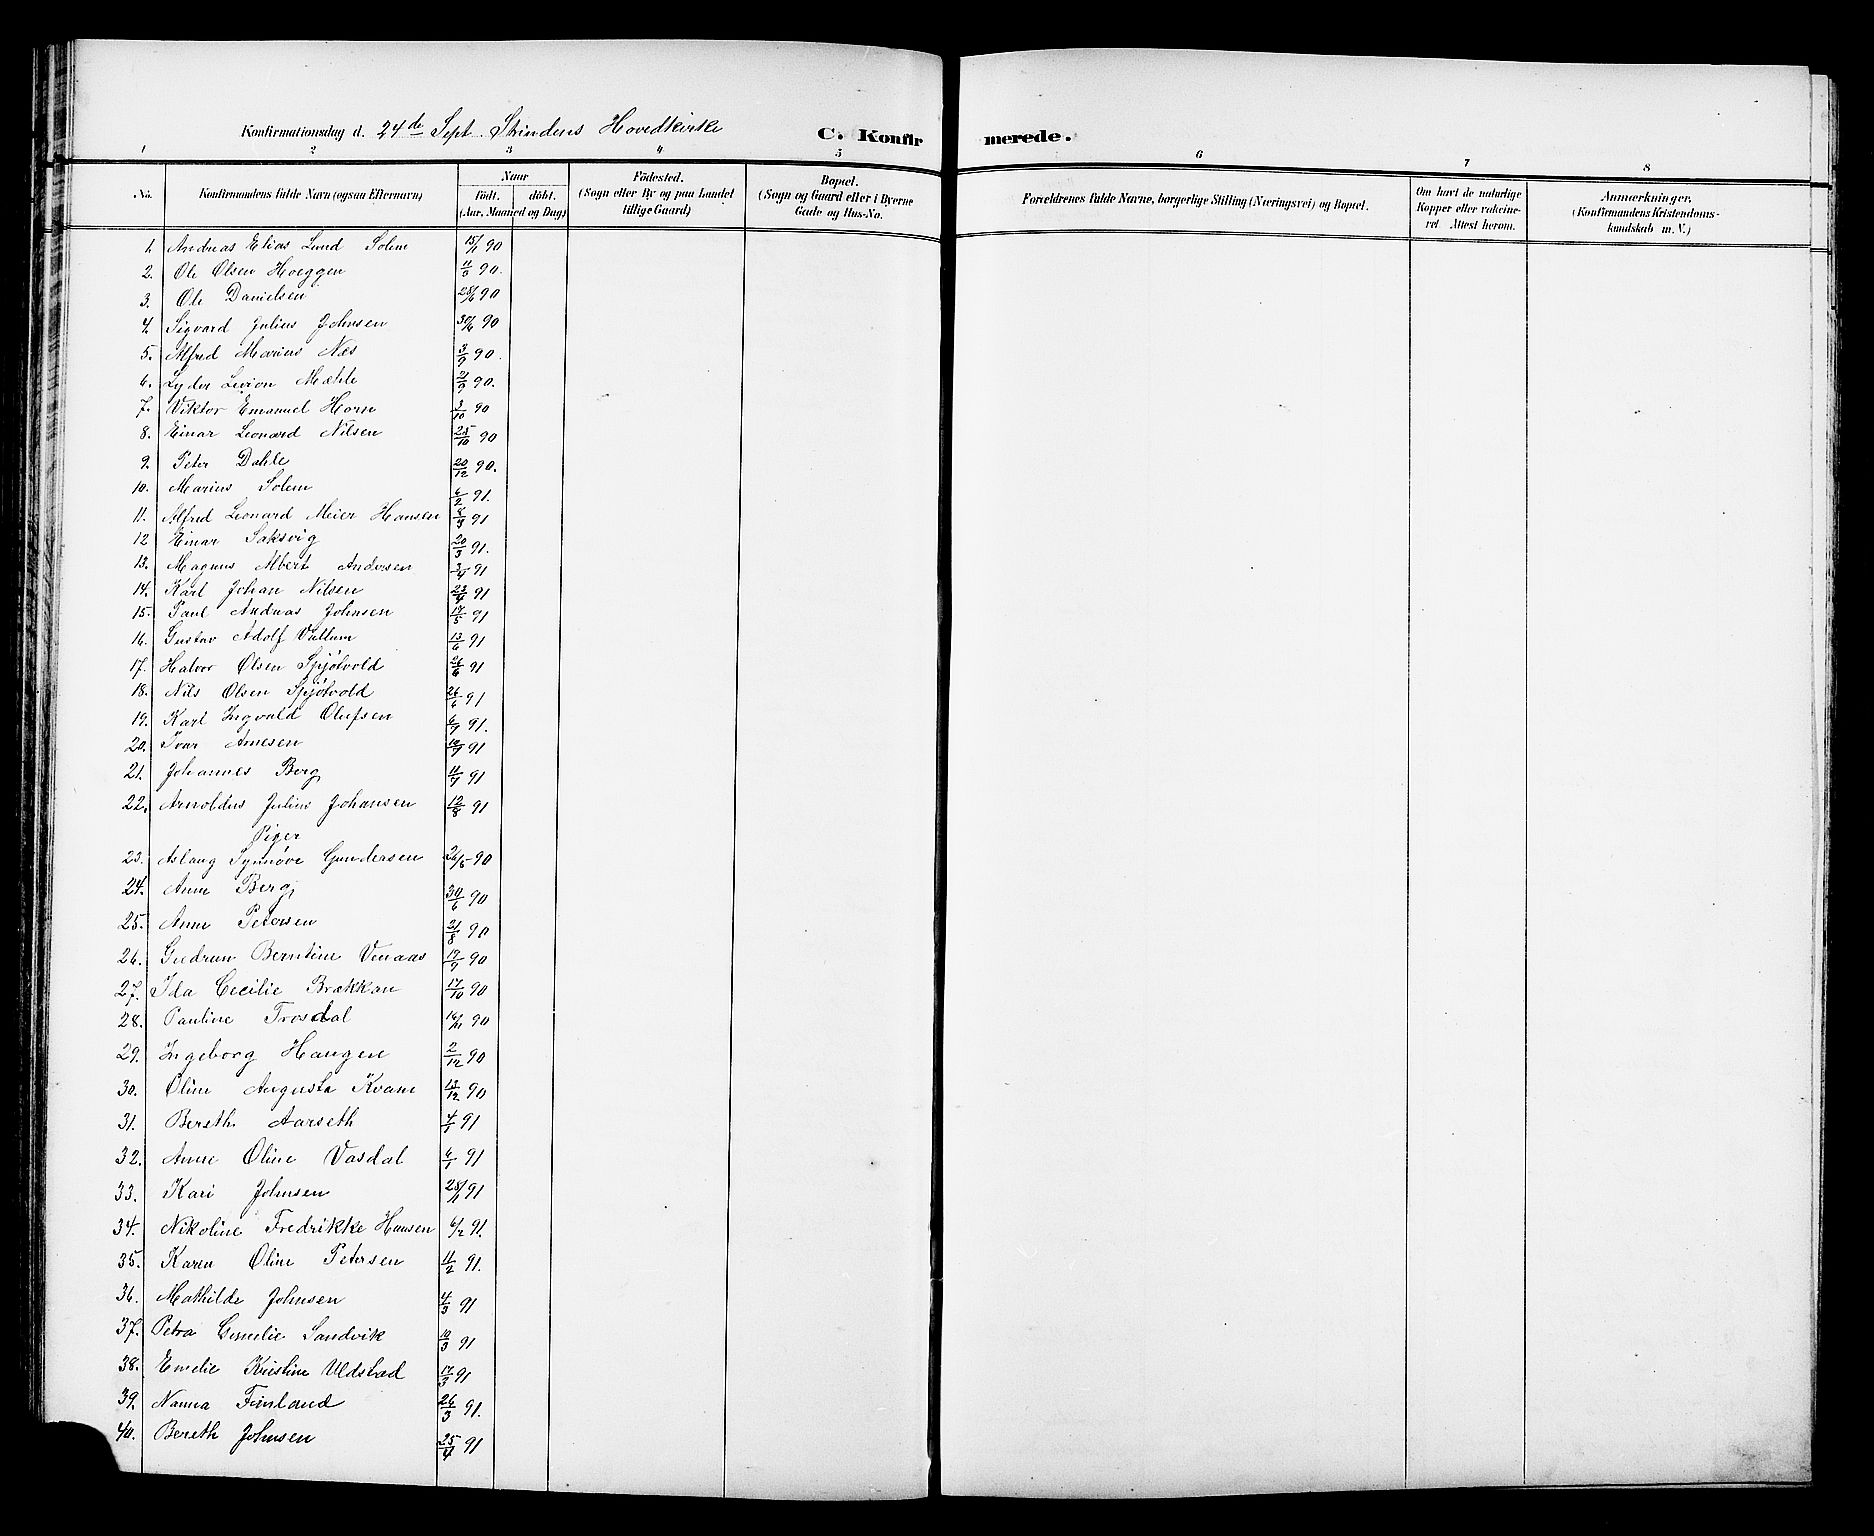 Konfirmationsdag d. 24de Sept. Strindens Hovedkirke
C. Konfirmerede.
1 2 3 4 5 6 7 8
No.
Konfirmandens fulde Navn (ogsaa Efternavn)
Naar
födt. döbt.
(Aar, Maaned og Dag)
Födested.
(Sogn eller By og paa Landet
tillige Gaard)
Bopæl.
(Sogn og Gaard eller i Byerne
Gade og Hus-No.
Forældrenes fulde Navne, borgerlige Stilling (Næringsvei) og Bopæl.
Om havt de naturlige
Kopper eller vakcine-
ret Attest herom.
Anmærkninger.
(Konfirmandens Kristendoms-
kundskab m. V.)
1. Andreas Elias Lund Solem 15/1 90
2. Ole Olsen Hoeggen 11/3 90.
3. Ole Danielsen 28/6 90
4. Sigvard Julius Johnsen 30/6 90
5. Alfred Marius Næs 3/9 90.
6. Lyder Levion Mæhle 21/9 90.
7. Viktor Emanuel Horn 3/10 90
8. Einar Leonard Nilsen 25/10 90
9. Peter Dahle 20/12 90.
10. Marius Solem 6/2 91.
11. Alfred Leonard Meier Hansen 8/3 91
12 Einar Saksvig 20/3 91.
13. Magnus Albert Andersen 3/4 91
14. Karl Johan Nilsen 23/4 91
15. Paul Andreas Johnsen 17/5 91
16. Gustav Adolf Vullum 13/6 91
17. Halvor Olsen Spjøtvold 26/6 91
18. Nils Olsen Spjøtvold 26/6 91
19. Karl Ingvald Olufsen 6/7 91.
20. Ivar Arnesen 10/7 91
21. Johannes Berg 11/7 91
22. Arnoldus Julius Johansen 12/8 91
Piger
23. Aslaug Synnøve Gundersen 26/5 90
24. Anne Berg 30/6 90
25. Anne Petersen 31/8 90
26. Gudrun Berntine Venaas 17/9 90
27. Ida Cecilie Brækkan 17/10 90
28. Pauline Trosdal 16/11 90
29. Ingeborg Haugen 2/12 90
30. Oline Augusta Kvam 13/12 90
31. Bereth Aarseth 4/1 91
32. Anne Oline Vasdal 6/1 91
33. Kari Johnsen 28/1 91
34. Nikoline Fredrikke Hansen 6/2 91.
35. Karen Oline Petersen 11/2 91.
36. Mathilde Johnsen 4/3 91
37. Petra Cemelie Sandvik 10/3 91
38. Emelie Kristine Uldstad 17/3 91
39. Nanna Finland 26/3 91.
40. Bereth Johnsen 25/4 91